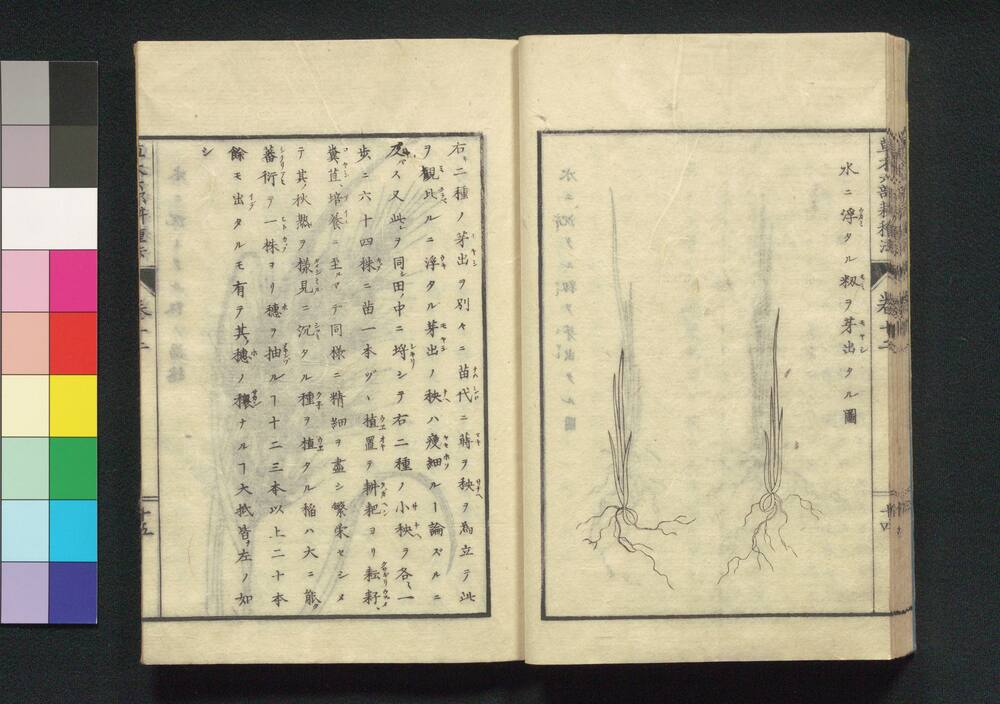 水ニ浮タル籾ヲ芽出タル圖
右ノ二種ノ芽出ヲ別々ニ苗代ニ蒔ヲ秧ヲ爲立テ此
ヲ觀比ルニ浮タル芽出ノ秧ハ瘦細ルヿ論ズルニ
及バス又此ヲ同シ田ノ中ニ埒シテ右二種ノ小秧ヲ各々一
歩ニ六十四株ニ苗一本ヅヽ植置テ耕耙ヨリ耘耔
糞苴培養ニ至ルマデ同樣ニ精細ヲ盡シ繁栄セシメ
テ其ノ秋熟ヲ樣見ニ沉タル種ヲ植タル稲ハ大ニ能ク
蕃衍テ一株ヨリ穗ヲ抽ルヿ十二三本以上二十本
餘モ出タルモ有テ其ノ穗ノ穰ナルヿ大抵皆ナ左ノ如
シ